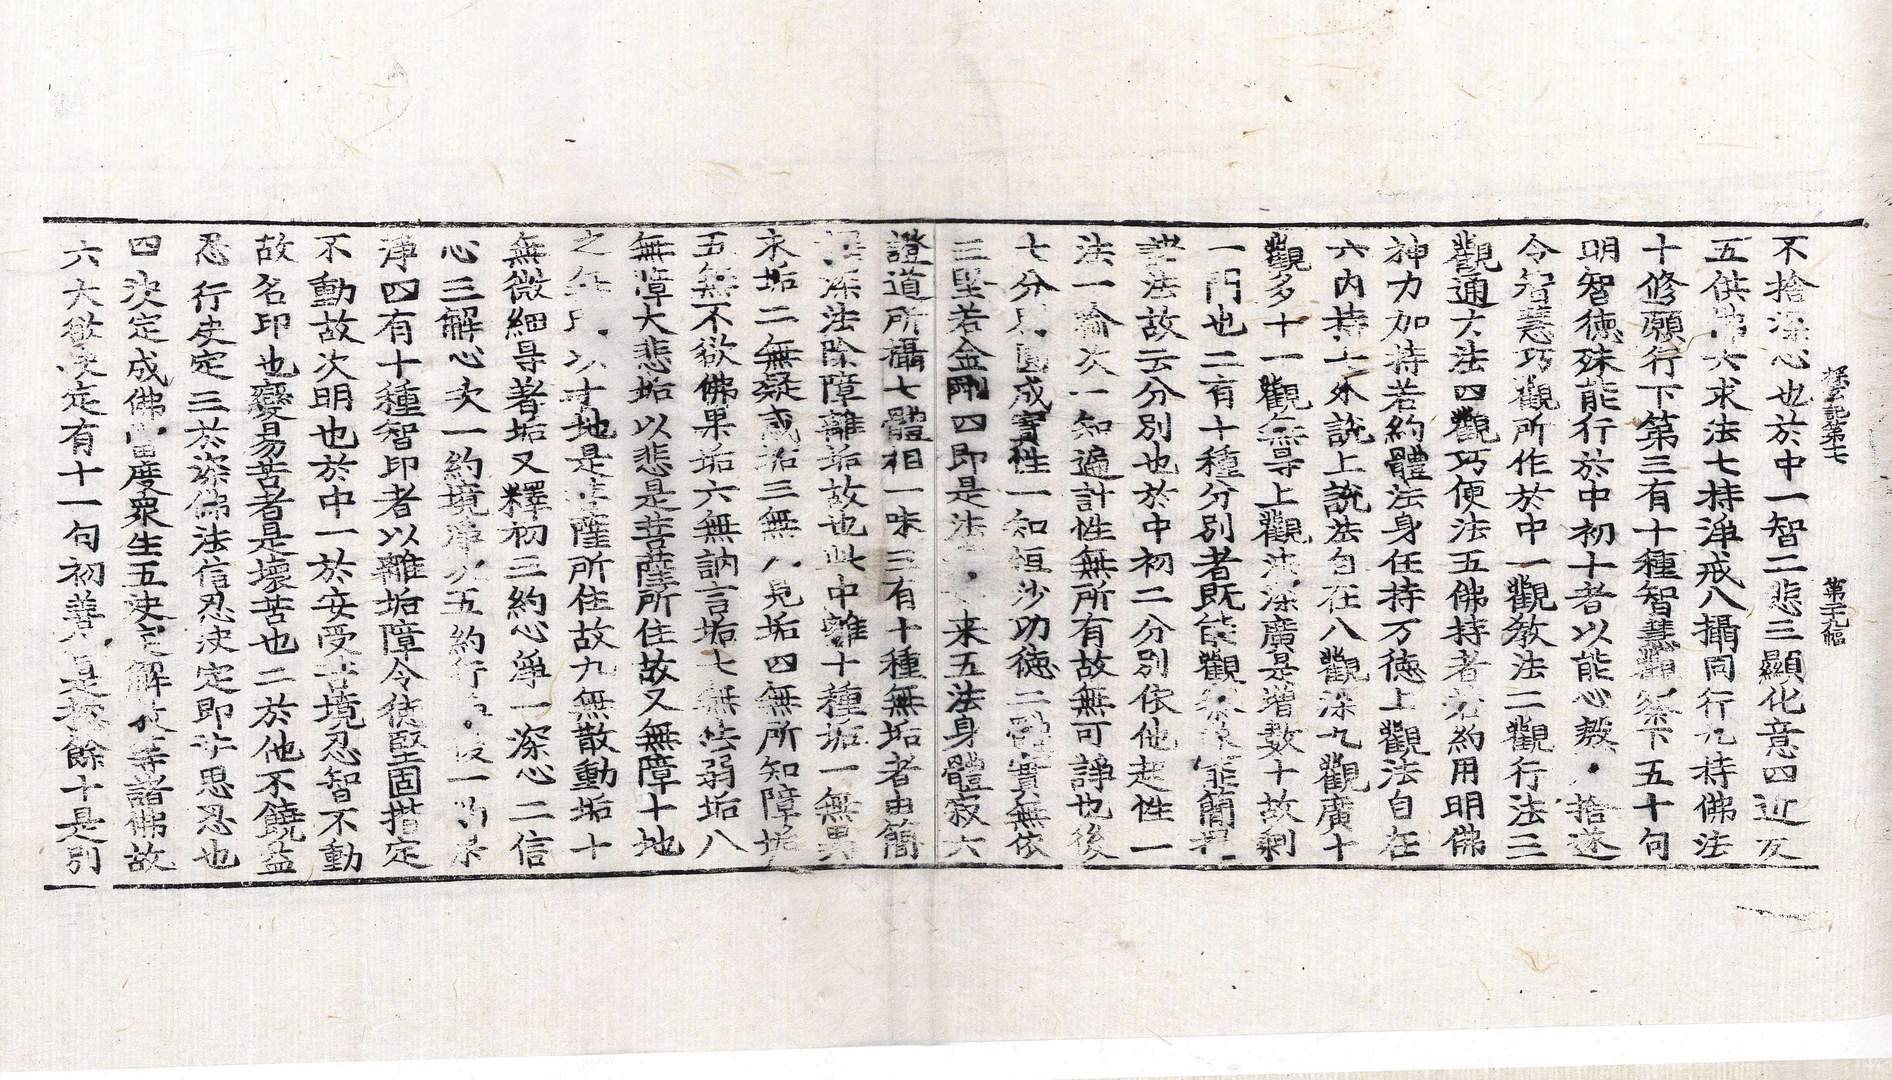 探玄記第十七 第二十九幅
不捨深心也於中一智二悲三顯化意四近友
五供佛六求法七持淨戒八攝同行九持佛法
十修願行下第三有十種智慧觀察下五十句
明智德殊能行於中初十者以能心發 捨遂
令智慧巧觀所作於中一觀教法二觀行法三
觀通六法四觀巧便法五佛持者若約用明佛
神力加持若約體法身任持万德上觀法自在
六內持上外說上說法自在八觀深九觀廣十
觀多十一觀無导上觀法深廣是增數十故剩
一門也二有十種分別者既能觀 簡擇
諸法故云分別也於中初二分別依他起性一
法一喻次一知遍計性無所有故無可諍也後
七分 圓成實性一知恒沙功德二體實無依
三堅若金剛四即是法 來五法身體寂六
證道所攝七體相一味三有十種無垢者由簡
擇深法除障離垢故也此中離十種垢一無畏
求垢二無疑惑垢三無 見垢四無所知障垢
五無不欲佛果垢六無訥言垢七無怯弱垢八
無障大悲垢以悲是菩薩所住故又無障十地
之 以十地是菩薩所住故九無散動垢十
無微細导著垢又釋初三約心淨一深心二信
心三解心次一約境淨 五約行 後一
淨四有十種智印者以離垢障令使堅固揩定
不動故次明也於中一於安受苦境忍智不動
故名印也變易苦者是壞苦也二於他不饒益
忍行決定三於深佛法信忍決定即 思忍也
四決定成佛當度眾生五決定解 等諸佛故
六大欲決定有十一句初善 是總餘十是別